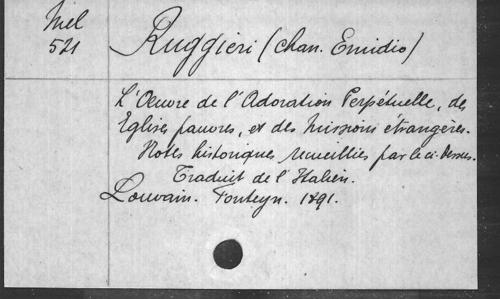 Mel
521
Ruggieri (chan. Emidio)
L'Oeuvre de l'Adoration Perpétuelle, des
Eglises pauvres, et des Missions étrangères.
Notes historiques recueillies par le ci-dessus.
Traduit de l'Italien.
Louvain. Fonteyn. 1891.